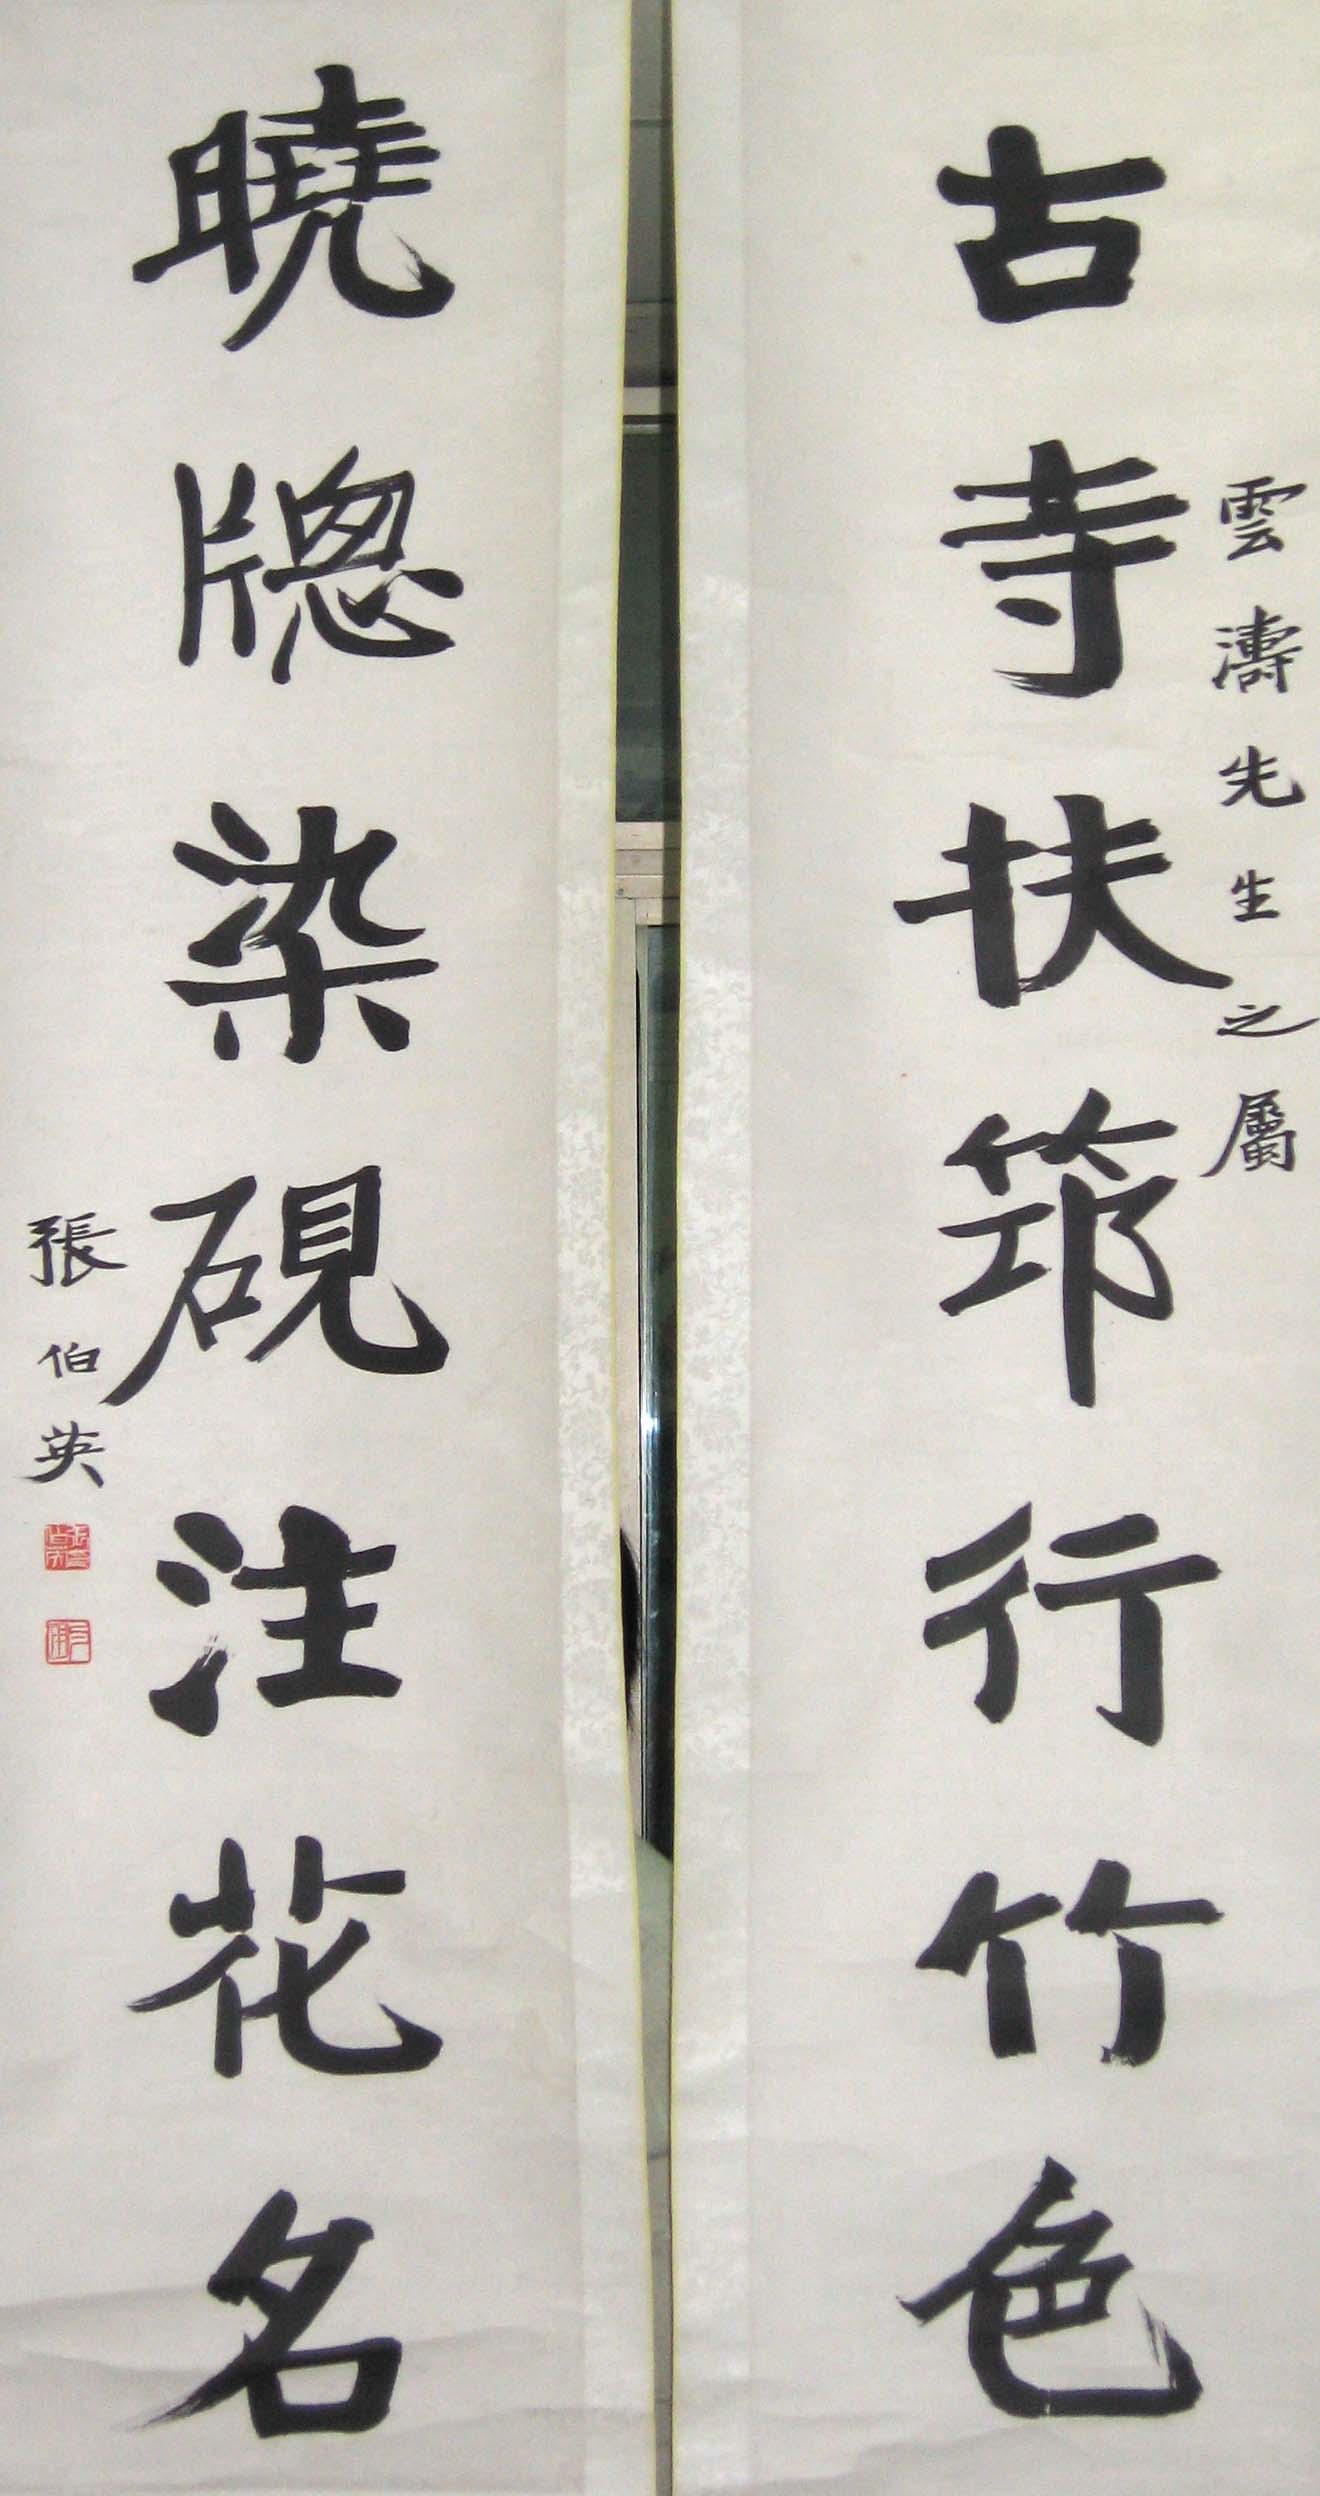 古寺扶筇行竹色
雲濤先生之屬
曉牕染硯注花名
張伯英